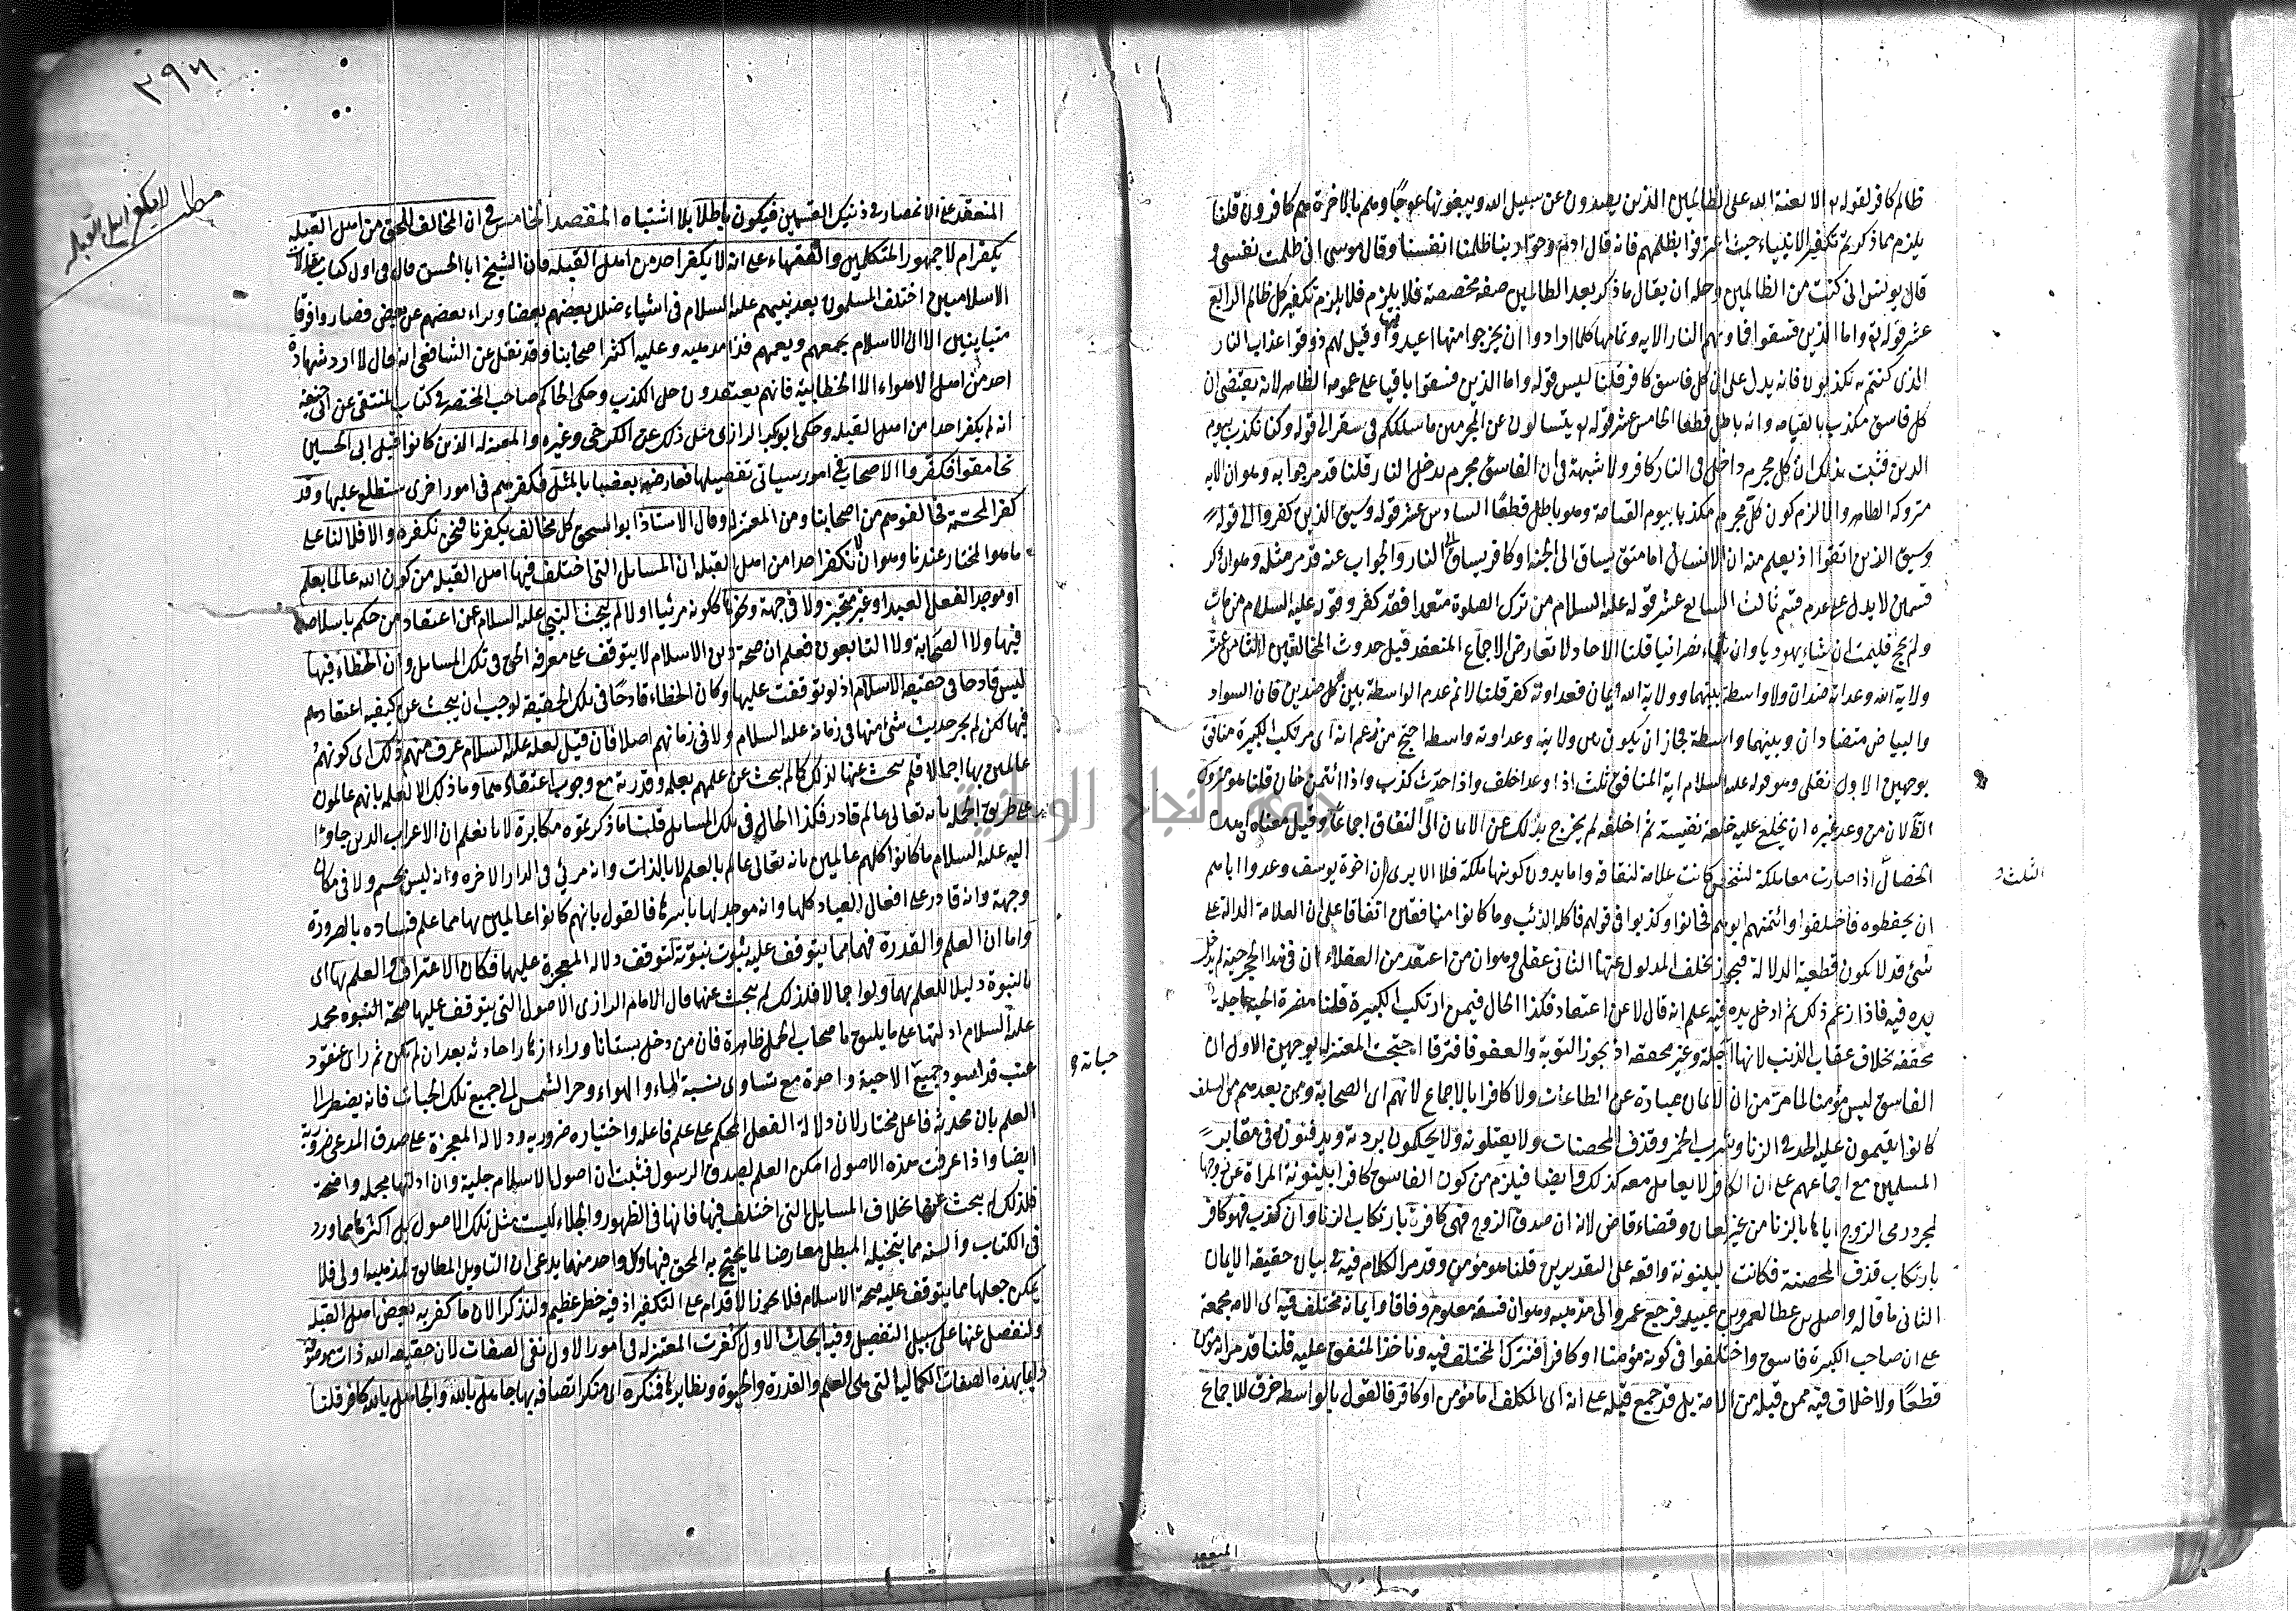 ظالم كافر لقوله تع الا لعنة الله على الظالمين الذين يصدون عن سبيل الله ويبغونها عوجًا وهم بالاخرة هم كافرون قلنا
يلزم مما ذكرتم تكفير الانبياء حيث اعترفوا بظلمهم فانه قال ادم وحوا ربنا ظلمنا انفسنا وقال موسى انى ظلمت نفسى و
قال يونس انى كنت من الظالمين وحله ان يقال ما ذكر بعد الظالمين صفة مخصصة فلا يلزم تكفير كل ظالم الرابع
عشر قوله تع واما الذين فسقوا فماويهم النار الايه وتمامها كلما ارادوا ان يخرجوا منها اعيدوا فيها وقيل لهم ذوقوا عذاب النار
الذى كنتم به تكذبون فانه يدل على ان كل فاسق كافر قلنا ليس قوله واما الذين فسقوا باقيا على عمومه الظاهر لانه يقتضى ان
كل فاسق مكذب بالقيامه وانه باطل قطعا الخامس عشر قوله تع يتسالون عن المجرمين ما سلككم فى سقر الى قوله وكنا نكذب بيوم
الدين فثبت بذلك ان كل مجرم داخل فى النار كافر ولا شبهة فى ان الفاسق مجرم يدخل النار قلنا قد مر جوابه وهو ان الايه
متروكه الظاهر والا لزم كون كل مجرم مكذبا بيوم القيامه وهو باطل قطعًا السادس عشر قوله وسيق الذين كفروا الى قوله
وسيق الذين اتقوا اذ يعلم منه ان الانسان اما متق يساق الى الجنة او كافر يساق الى النار والجواب عنه قد مر مثله وهو ان ذكر
قسمين لا يدل على عدم قسم ثالث السابع عشر قوله عليه السلام من ترك الصلوة متعمدا فقد كفر وقوله عليه السلام من مات
ولم يحج فليمت ان شاء يهوديا وان شاء نصرانيا قلنا الاحاد لا تعارض الاجماع المنعقد قبل حدوث المخالفين الثامن عشر
ولاية الله وعداوته ضدان ولا واسطة بينهما وولاية الله ايمان فعداوته كفر قلنا لا نم عدم الواسطة بين كل ضدين فان السواد
والبياض متضادان وبينهما واسطة فجاز ان يكون بين ولايته وعداوته واسطه احتج من زعم انه اى مرتكب الكبيرة منافق
بوجهين الاول نقلى وهو قوله عليه السلام اية المنافق ثلث اذا وعد اخلف واذا حدّث كذب واذا ائتمن خان قلنا هو متروك
الظ لان من وعد غيره ان يخلع عليه خلعة نفيسة ثم اخلفه لم يخرج بذلك عن الايمان الى النفاق اجماعًا وقيل معناه ان هذه
الثلث و
الخصال اذا صارت معا ملكة لشخص كانت علامة لنفاقه واما بدون كونها ملكة فلا الا يرى ان اخوة يوسف وعدوا اباهم
ان يحفظوه فاخلفوا وائتمنهم ابوهم فخانوا وكذبوا فى قولهم فاكله الذئب وما كانوا منافقين اتفاقا على ان العلامة الدالة على
شئ قد لا يكون قطعية الدلالة فيجوز تخلف المدلول عنها الثانى عقلى وهو ان من اعتقد من العقلاء ان فى هذا الحجر حية لم يدخل
يده فيه فاذا زعم ذلك ثم ادخل يده فيه علم انه قال لا عن اعتقاد فكذا الحال فيمن ارتكب الكبيرة قلنا مضرة الحية عاجلة
محققه بخلاف عقاب الذنب لانها اجلة وغير محققه اذ يجوز التوبة والعفو فافترقا احتجت المعتزلة بوجهين الاول ان
الفاسق ليس مؤمنا لما مر من ان الايمان عبارة عن الطاعات ولا كافرا بالاجماع لانهم اى الصحابة ومن بعدهم من السلف
كانوا يقيمون عليه الحد فى الزنا وشرب الخمر وقذف المحصنات ولا يقتلونه ولا يحكمون بردته ويدفنونه فى مقابر
المسلمين مع اجماعهم على ان الكافر لا يعامل معه كذلك وايضا فيلزم من كون الفاسق كافرا بينونة المراة عن زوجها
لمجرد رمى الزوج اياها بالزنا من غير لعان وقضاء قاض لانه ان صدق الزوج فهى كافرة بارتكاب الزنا وان كذب فهو كافر
بارتكاب قذف المحصنة فكانت البينونة واقعه على التقديرين قلنا هو مؤمن وقد مر الكلام فيه فى بيان حقيقة الايمان
الثانى ما قاله واصل بن عطا لعمرو بن عبيد فرجع عمرو الى مذهبه وهو ان فسقه معلوم وفاقا وايمانه مختلف فيه اى الامه مجمعة
على ان صاحب الكبيرة فاسق واختلفوا فى كونه مؤمنا او كافرا فنترك المختلف فيه وناخذ المتفق عليه قلنا قد مر انه مؤمن
قطعًا ولا خلاف فيه ممن قبله من الامة بل قد جمع قبله على انه اى المكلف اما مؤمن او كافر فالقول بالواسطه خرق للاجماع
المنعقد
٣٩٦
مطلب لا يكفر اهل القبله
المنعقد على الانحصار فى ذنيك القسمين فيكون باطلا بلا اشتباه المقصد الخامس فى ان المخالف للحق من اهل القبله هل
يكفر ام لا جمهور المتكلمين والفقهاء على انه لا يكفر احد من اهل القبله فان الشيخ ابا الحسن قال فى اول كتاب مقالات
الاسلاميين اختلف المسلمون بعد نبيهم عليه السلام فى اشياء ضلل بعضهم بعضا وبراء بعضهم عن بعض فصاروا فرقا
متباينين الا ان الاسلام يجمعهم ويعمهم فذا مذهبه وعليه اكثر اصحابنا وقد نقل عن الشافعى انه قال لا ارد شهادة
احد من اهل الاهواء الا الخطابية فانهم يعتقدون حل الكذب وحكى الحاكم صاحب المختصر فى كتاب المنتقى عن ابى حنيفه
انه لم يكفر احدا من اهل القبله وحكى ابو بكر الرازى مثل ذلك عن الكرخى وغيره والمعتزله الذين كانوا قبل ابى الحسين
تحامقوا فكفروا الاصحاب فى امور سياتى تفصيلها فعارضه بعضنا بالمثل فكفرهم فى امور اخرى ستطلع عليها وقد
كفر المجسمة مخالفوهم من اصحابنا ومن المعتزله وقال الاستاذ ابو اسحق كل مخالف يكفرنا فنحن نكفره والا فلا لنا على
ما هو المختار عندنا وهو ان لا نكفر احدا من اهل القبلة ان المسايل التى اختلف فيها اهل القبله من كون الله عالما بعلم
او موجد الفعل العبد او غير متحيز ولا فى جهة ونحوها ككونه مرئيا او لا لم يبحث النبى عليه السلام عن اعتقاد من حكم باسلامه
فيها ولا الصحابة ولا التابعون فعلم ان صحة دين الاسلام لا يتوقف على معرفه الحق فى تلك المسايل وان الخطاء فيها
ليس قادحا فى حقيقه الاسلام اذ لو توقفت عليها وكان الخطاء قادحًا فى تلك الحقيقه لوجب ان يبحث عن كيفيه اعتقادهم
فيها لكن لم يجر حديث شئ منها فى زمانه عليه السلام ولا فى زمانهم اصلا فان قيل لعله عليه السلام عرف منهم ذلك اى كونهم
عالمين بها اجمالا فلم يبحث عنها لذلك كما لم يبحث عن علمهم بعلمه وقدرته مع وجوب اعتقادهما وما ذلك الا لعلمه بانهم عالمون
على طريق الجمله بانه تعالى عالم قادر فكذا الحال فى تلك المسايل قلنا ما ذكرتموه مكابرة لانا نعلم ان الاعراب الذين جاؤا
اليه عليه السلام ما كانوا كلهم عالمين بانه تعالى عالم بالعلم لا بالذات وانه مرئي فى الدار الاخره وانه ليس بجسم ولا فى مكان
وجهة وانه قادر على افعال العباد كلها وانه موجد لها باسرها فالقول بانهم كانوا عالمين بها مما علم فساده بالضرورة
واما ان العلم والقدرة فهما مما يتوقف عليه ثبوت نبوته لتوقف دلاله المعجزة عليها فكان الاعتراف والعلم بها اى
بالنبوة دليلا للعلم بهما ولو اجمالا فلذلك لم يبحث عنها قال الامام الرازى الاصول التى يتوقف عليها صحة النبوه محمد
عليه السلام ادلتها على ما يليق باصحاب الجمل ظاهرة فان من دخل بستانا وراء ازهارا حادثه بعد ان لم تكن ثم راى عنقود
حباته و
عنب قد اسود جميع الاحبة واحدة مع تساوى نسبة الماء والهواء وحر الشمس الى جميع تلك الحبات فانه يضطر الى
العلم بان محدثه فاعل مختار لان دلالة الفعل المحكم على علم فاعله واختياره ضروريه ودلاله المعجزة على صدق المدعى ضرورية
ايضا واذا عرفت هذه الاصول امكن العلم بصدق الرسول فثبت ان اصول الاسلام جلية وان ادلتها مجمله واضحة
فلذلك لم يبحث عنها بخلاف المسايل التى اختلف فيها فانها فى الظهور والجلاء ليست مثل تلك الاصول بل اكثرها مما ورد
فى الكتاب والسنه مما يتخيله المبطل معارضا لما يحتج به المحق فيها وكل واحد منهما يدعى ان التاويل المطابق لمذهبه اولى فلا
يمكن جعلها مما يتوقف عليه صحة الاسلام فلا يجوز الاقدام على التكفير اذ فيه خطر عظيم ولنذكر الان ما كفر به بعض اهل القبله
ولنفصل عنها على سبيل التفصيل وفيه ابحاث الاول كفرت المعتزله فى امور الاول نفى الصفات لان حقيقه الله ذات موصوفة
دايما بهذه الصفات الكماليه التى هى العلم والقدرة والحيوة ونظايرها فمنكره اى منكر اتصافه بها جاهل بالله والجاهل بالله كافر قلنا
جامعة النجاح الوطنية